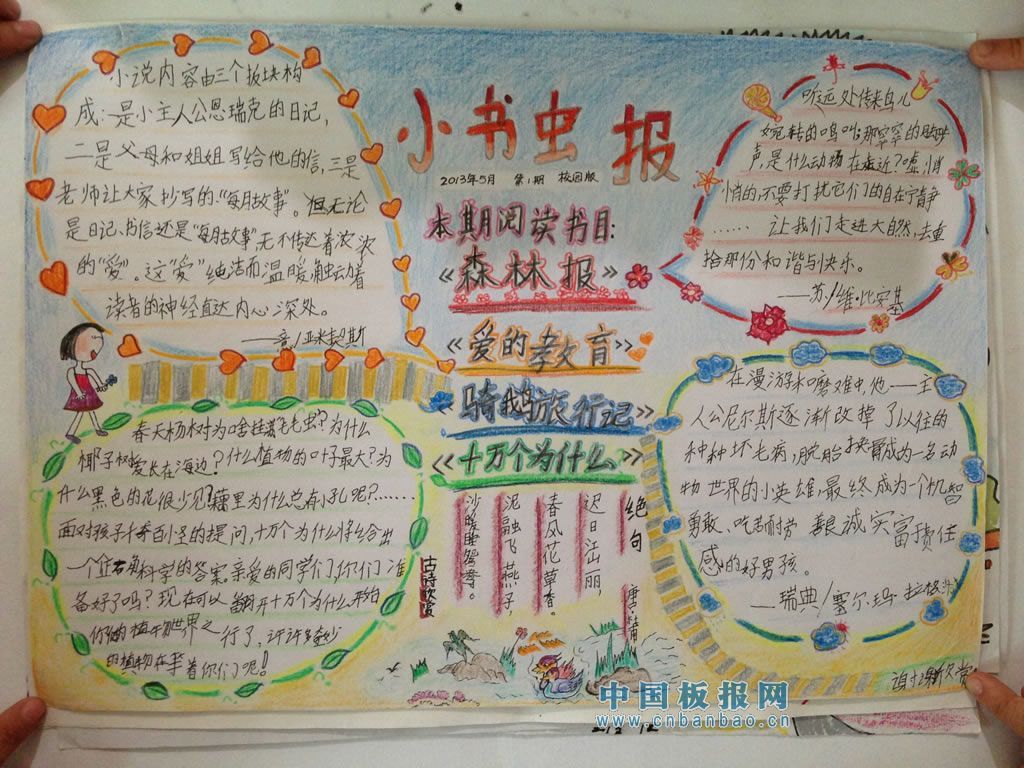 小书虫报
2013年5月 第1期 校园版
本期阅读书目:
《森林报》
《爱的教育》
《骑鹅旅行记》
《十万个为什么》
小说内容由三个板块构
成:一是小主人公恩瑞克的日记,
二是父母和姐姐写给他的信,三是
老师让大家抄写的“每月故事”。但无论
是日记、书信还是“每月故事”无不传达着浓浓
的“爱”。这“爱”纯洁而温暖,触动着
读者的神经直达内心深处。
——意/亚米契斯
听远处传来鸟儿
婉转的鸣叫,那窸窣的脚步
声,是什么动物在靠近?嘘,悄
悄的,不要打扰它们的自在宁静
……让我们走进大自然,去重
拾那份和谐与快乐。
——苏/维·比安基
春天杨树为啥挂满毛毛虫?为什么
椰子树爱长在海边?什么植物的叶子最大?为
什么黑色的花很少见?藕里为什么总有小孔呢?……
面对孩子千奇百怪的提问,十万个为什么将给出
一个正确科学的答案,亲爱的同学们,你们准
备好了吗?现在可以翻开十万个为什么,开始
你们的植物世界之行了,许许多多奇妙
的植物在等着你们呢!
在漫游和磨难中,他——主
人公尼尔斯逐渐改掉了以往的
种种坏毛病,脱胎换骨成为一名动
物世界的小英雄,最终成为一个机智
勇敢、吃苦耐劳 善良诚实富责任
感的好男孩。
——瑞典/塞尔·玛·拉格洛
绝句
唐·杜甫
迟日江山丽,
春风花草香。
泥融飞燕子,
沙暖睡鸳鸯。
古诗欣赏
谢欣赏
中国板报网
www.cnbanbao.cn